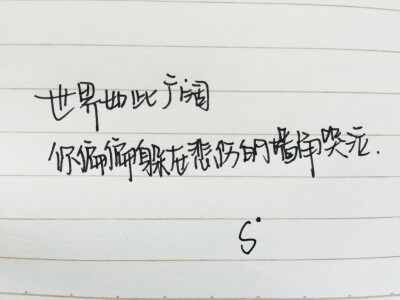 世界如此广阔
你偏偏躲在悲伤的墙角哭泣.
S.